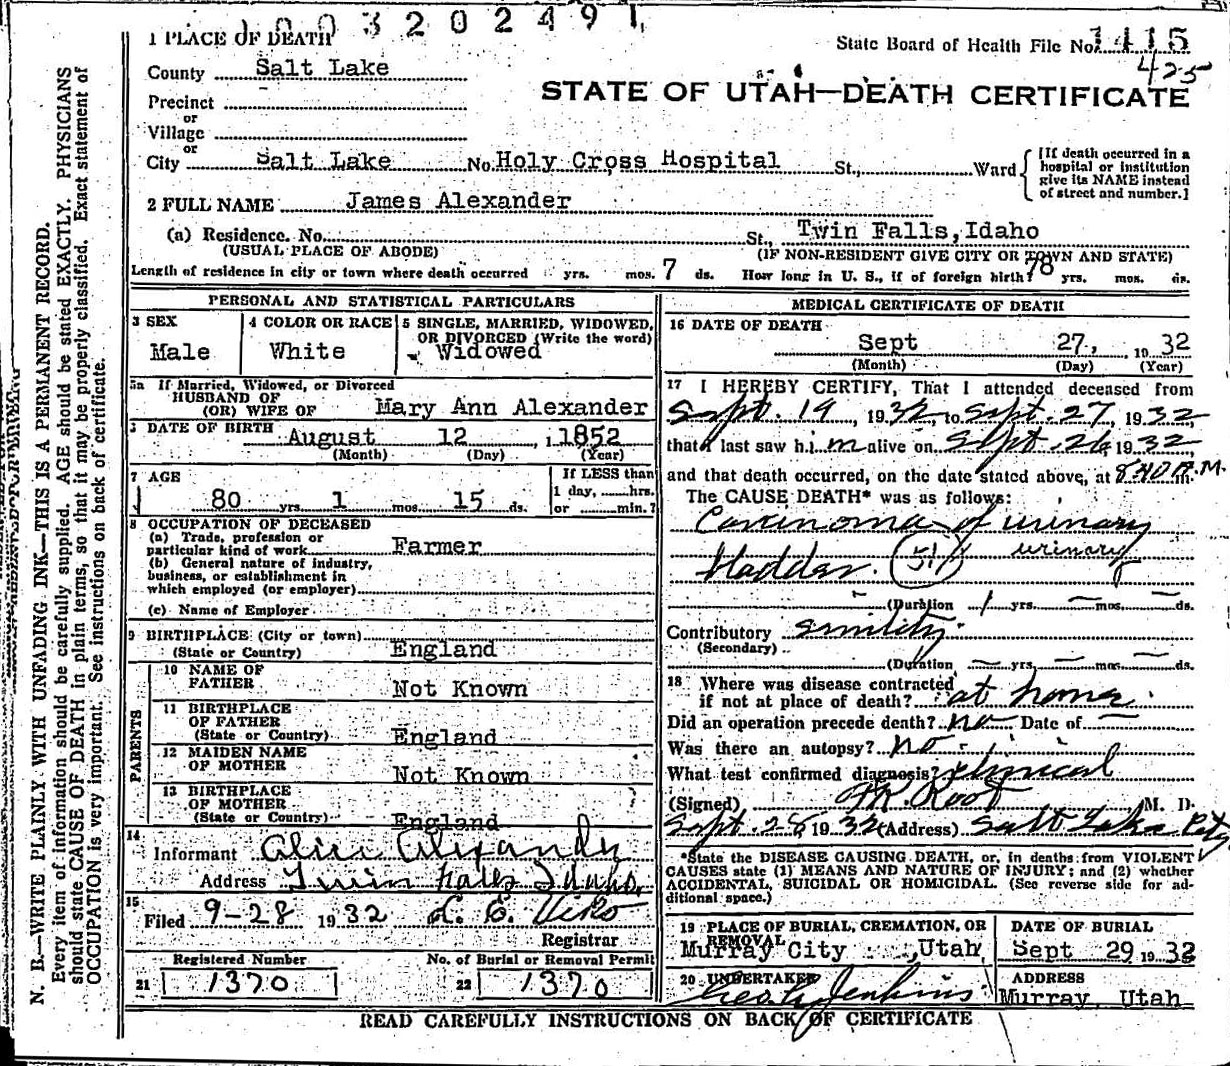 1 0 0 3 2 0 2 4 9 1
State Board of Health File No. 1415
425
STATE OF UTAH—DEATH CERTIFICATE
1 PLACE OF DEATH
County Salt Lake
Precinct
or
Village
or
City Salt Lake No. Holy Cross Hospital St., Ward
[If death occurred in a
hospital or institution
give its NAME instead
of street and number.]
2 FULL NAME James Alexander
(a) Residence. No. St., Twin Falls, Idaho
(USUAL PLACE OF ABODE) (IF NON-RESIDENT GIVE CITY OR TOWN AND STATE)
Length of residence in city or town where death occurred yrs. mos. 7 ds. How long in U. S., if of foreign birth? 78 yrs. mos. ds.
PERSONAL AND STATISTICAL PARTICULARS
3 SEX
Male
4 COLOR OR RACE
White
5 SINGLE, MARRIED, WIDOWED,
OR DIVORCED (Write the word)
Widowed
5a If Married, Widowed, or Divorced
HUSBAND OF
(OR) WIFE OF Mary Ann Alexander
DATE OF BIRTH August 12 1852
(Month) (Day) (Year)
7 AGE
80 yrs. 1 mos. 15 ds.
If LESS than
1 day, hrs.
or min.?
8 OCCUPATION OF DECEASED
(a) Trade, profession or
particular kind of work Farmer
(b) General nature of industry,
business, or establishment in
which employed (or employer)
(c) Name of Employer
9 BIRTHPLACE (City or town)
(State or Country) England
PARENTS
10 NAME OF
FATHER Not Known
11 BIRTHPLACE
OF FATHER
(State or Country) England
12 MAIDEN NAME
OF MOTHER Not Known
13 BIRTHPLACE
OF MOTHER
(State or Country) England
14
Informant Alice Alexander
Address Twin Falls Idaho.
15
Filed 9-28 1932
Registrar
Registered Number
21 1370
No. of Burial or Removal Permit
22 1370
MEDICAL CERTIFICATE OF DEATH
16 DATE OF DEATH
Sept 27, 1932
(Month) (Day) (Year)
17 I HEREBY CERTIFY, That I attended deceased from
Sept. 19, 1932, to Sept. 27, 1932,
that I last saw h.im alive on Sept. 26 1932
and that death occurred, on the date stated above, at 8:40 A.M.
The CAUSE DEATH* was as follows:
Carcinoma of urinary
bladder. 51 urinary
(Duration 1 yrs. — mos. — ds.
Contributory Senility.
(Secondary)
(Duration — yrs. — mos. — ds.
18 Where was disease contracted
if not at place of death? at home.
Did an operation precede death? no Date of —
Was there an autopsy? no.
What test confirmed diagnosis? clinical
(Signed) Root M. D.
Sept. 28 1932 (Address) Salt Lake City
*State the DISEASE CAUSING DEATH, or, in deaths from VIOLENT
CAUSES state (1) MEANS AND NATURE OF INJURY; and (2) whether
ACCIDENTAL, SUICIDAL OR HOMICIDAL. (See reverse side for ad-
ditional space.)
19 PLACE OF BURIAL, CREMATION, OR
REMOVAL
Murray City , Utah
DATE OF BURIAL
Sept 29 1932
20 UNDERTAKER
Jenkins
ADDRESS
Murray, Utah
READ CAREFULLY INSTRUCTIONS ON BACK OF CERTIFICATE
N. B.—WRITE PLAINLY WITH UNFADING INK—THIS IS A PERMANENT RECORD.
Every item of information should be carefully supplied. AGE should be stated EXACTLY. PHYSICIANS
should state CAUSE OF DEATH in plain terms, so that it may be properly classified. Exact statement of
OCCUPATION is very important. See instructions on back of certificate.